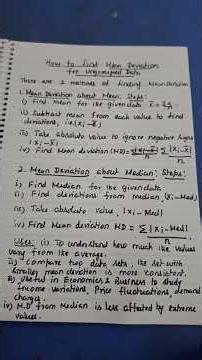 How to find Mean Deviation
for Ungrouped Data
There are 2 methods of finding Mean Deviation
1. Mean Deviation about Mean: Steps:
i) Find mean for the given data x̄ = Σxi/n
ii) Subtract mean from each value to find
deviations, i.e. |xi - x̄|
iii) Take absolute value to ignore negative signs
|xi - x̄|
iv) Find Mean deviation (MD) = Σ|xi - x̄|/n
2. Mean Deviation about Median: Steps:
i) Find Median for the given data
ii) Find deviations from median, (xi - Med)
iii) Take absolute value, |xi - Med|
iv) Find Mean deviation MD = Σ |xi - Med|/n
Uses: i) To understand how much the values
vary from the average.
ii) Compare two data sets, the set with
smaller mean deviation is more consistent.
iii) Useful in Economics & Business to study
income variation, Price fluctuations, demand
changes.
iv) M.D from Median is less affected by extreme
values.